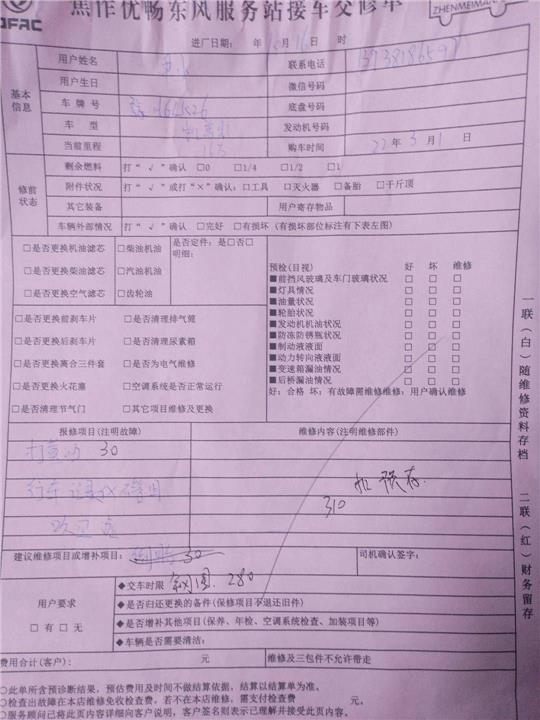 焦作优畅东风服务站接车交修单
DFAC
ZHENMEIMAN
进厂日期: 年 月16日 时
基本信息
用户姓名
联系电话
用户生日
微信号码
车牌号
底盘号码
车型
发动机号码
当前里程
购车时间 22年3月1日
修前状态
剩余燃料 打“√”确认 □0 □1/4 □1/2 □1
附件状况 打“√”或打“×”确认:□工具 □灭火器 □备胎 □千斤顶
其它装备
用户寄存物品
车辆外部情况 打“√”确认 □完好 □有损坏(有损坏部位标注有下表左图)
□是否更换机油滤芯 □柴油机油 是否定件:是□否□
明细:
□是否更换柴油滤芯 □汽油机油
□是否更换空气滤芯 □齿轮油
预检(目视) 好 坏 维修
■前挡风玻璃及车门玻璃状况 □ □ □
■灯具情况 □ □ □
■油量状况 □ □ □
■轮胎状况 □ □ □
■发动机机油状况 □ □ □
■防冻防锈瓶状况 □ □ □
■制动液液面 □ □ □
■动力转向液液面 □ □ □
■变速箱漏油情况 □ □ □
■后桥漏油情况 □ □ □
好:合格 坏:有故障需维修维修:用户确认维修
□是否更换前刹车片 □是否清理排气筒
□是否更换后刹车片 □是否清理尿素箱
□是否更换离合三件套 □是否为电气维修
□是否更换火花塞 □空调系统是否正常运行
□是否清理节气门 □其它项目维修及更换
报修项目(注明故障)
维修内容(注明维修部件)
打黄油 30
行车记录仪不管用
310
建议维修项目或增补项目: 30
司机确认签字:
用户要求
□有 □无
◆交车时限 280
◆是否归还更换的备件(保修项目不退还旧件)
◆是否增补其他项目(保养、年检、空调系统检查、加装项目等)
◆车辆是否需要清洁:
费用合计(客户): 元
维修及三包件不允许带走
○此单所含预诊断结果,预估费用及时间不做结算依据,结算以结算单为准。
○检查出故障在本店维修免收检查费,若不在本店维修,需支付检查费 元
○服务顾问已将此页内容详细向客户说明,客户签名则表示已理解并接受此页内容。
一联(白)随维修资料存档 二联(红)财务留存